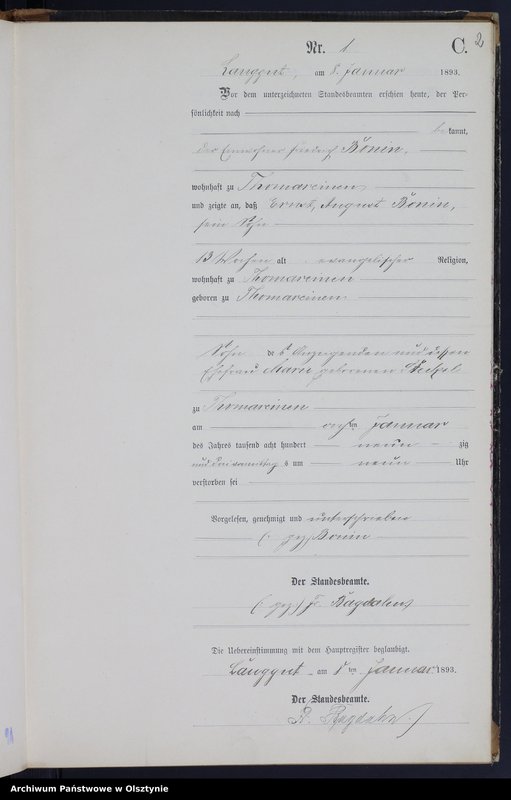 Nr. 1 C. 2
Langgut, am 8. Januar 1893.
Vor dem unterzeichneten Standesbeamten erschien heute, der Per-
sönlichkeit nach
be kannt,
der Einwohner Friedrich Bönin,
wohnhaft zu Thomareinen
und zeigte an, daß Ernst, August Bönin,
sein Sohn
13 Wochen alt evangelischer Religion,
wohnhaft zu Thomareinen
geboren zu Thomareinen
Sohn des Anzeigenden und dessen
Ehefrau Marie, geborenen
zu Thomareinen
am ten Januar
des Jahres tausend acht hundert neun zig
und drei vormittags um neun Uhr
verstorben sei
Vorgelesen, genehmigt und unterschrieben
(gez) Bönin
Der Standesbeamte.
(gez) Bagdahn
Die Uebereinstimmung mit dem Hauptregister beglaubigt.
Langgut am 8 ten Januar 1893.
Der Standesbeamte.
Bagdahn
Archiwum Państwowe w Olsztynie